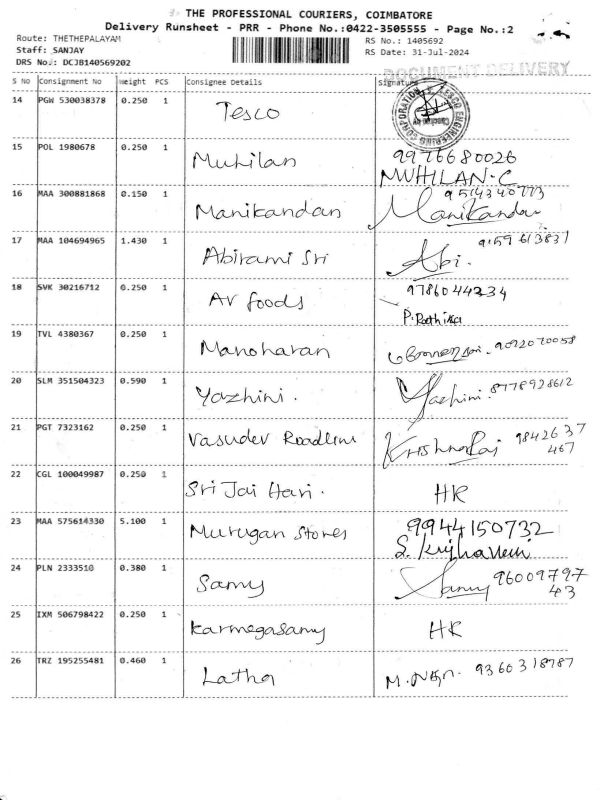 THE PROFESSIONAL COURIERS, COIMBATORE
Delivery Runsheet - PRR - Phone No.:0422-3505555 - Page No.:2
Route: THETHEPALAYAM RS No.: 1405692
Staff: SANJAY RS Date: 31-Jul-2024
DRS No.: DCJB140569202
DOCUMENT DELIVERY
S No Consignment No Weight PCS Consignee Details Signature
14 PGW 530038378 0.250 1 Tesco
15 POL 1980678 0.250 1 Muhilan 9976680026
MUHILAN.C
16 MAA 300881868 0.150 1 Manikandan Manikandan 9514340773
17 MAA 104694965 1.430 1 Abirami Sri Abi. 9159613831
18 SVK 30216712 0.250 1 AV foods 9786044234
P. Rathika
19 TVL 4380367 0.250 1 Manoharan
20 SLM 351504323 0.590 1 Yazhini. Yazhini. 8778928612
21 PGT 7323162 0.250 1 Vasudev Roadline KrishnaRaj 9842637
467
22 CGL 100049987 0.250 1 Sri Jai Hari. HK
23 MAA 575614330 5.100 1 Murugan Stores 9944150732
24 PLN 2333510 0.380 1 Samy Samy 96009797
43
25 IXM 506798422 0.250 1 Karmegasamy HK
26 TRZ 195255481 0.460 1 Latha 9360318787